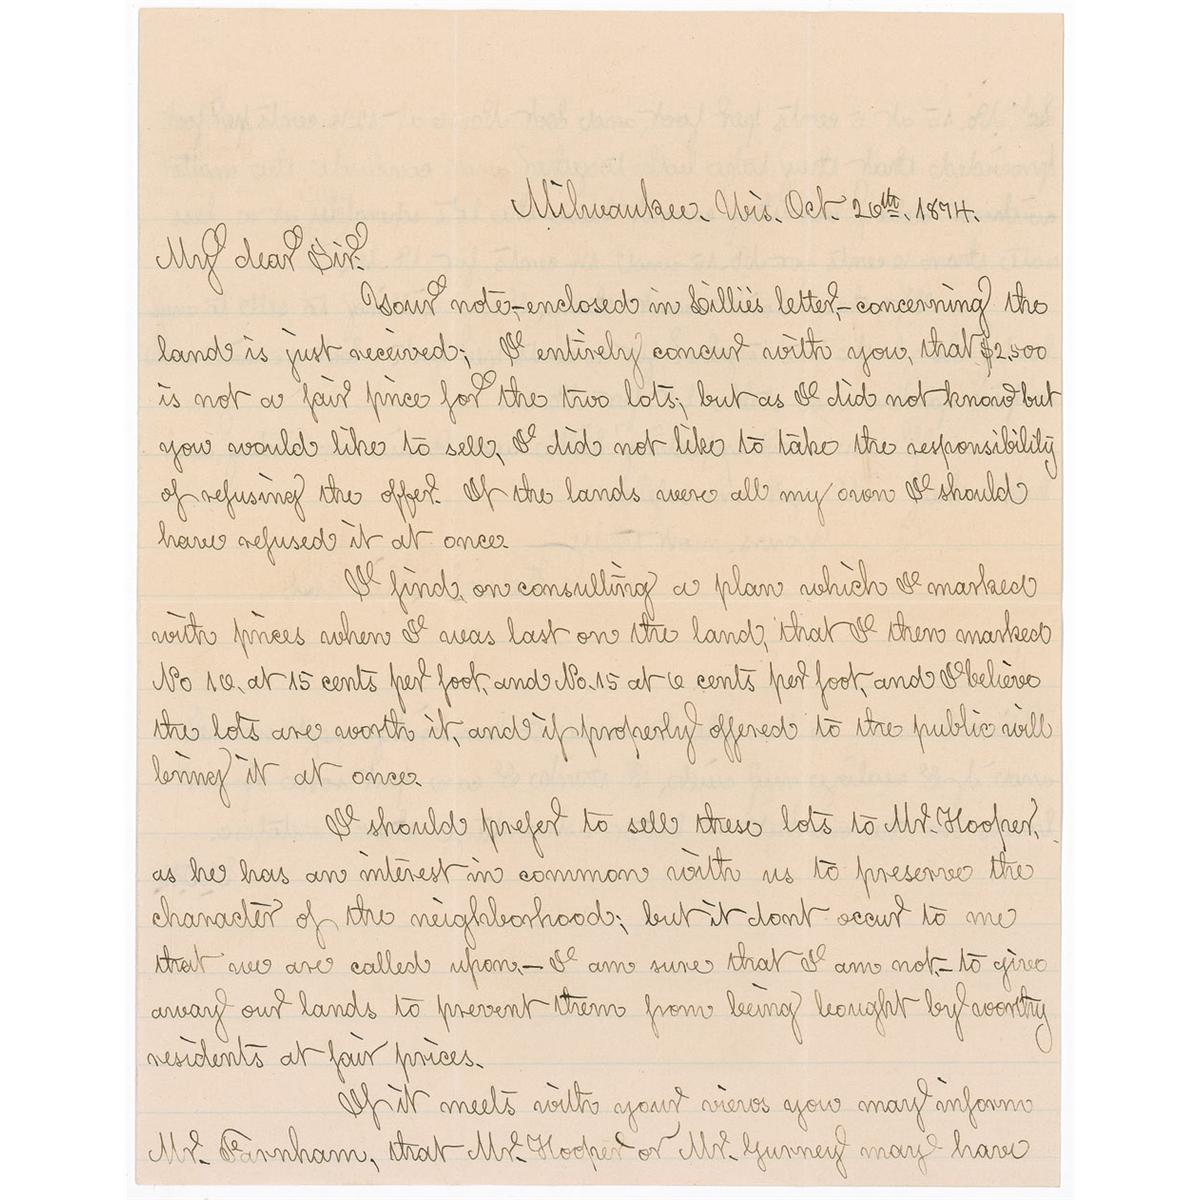 Milwaukee. Wis. Oct. 26th. 1874.
My dear Sir.
Your note,-enclosed in Lillie's letter,-concerning the
land is just received; I entirely concur with you, that $2.500
is not a fair price for the two lots; but as I did not know but
you would like to sell, I did not like to take the responsibility
of refusing the offer. If the lands were all my own I should
have refused it at once.
I find, on consulting a plan which I marked
with prices when I was last on the land, that I then marked
No 16. at 15 cents per foot, and No. 15 at 6 cents per foot, and I believe
the lots are worth it, and if properly offered to the public will
bring it at once.
I should prefer to sell these lots to Mr. Hooper,
as he has an interest in common with us to preserve the
character of the neighborhood; but it dont occur to me
that we are called upon,- I am sure that I am not,- to give
away our lands to prevent them from being bought by worthy
residents at fair prices.
If it meets with your views you may inform
Mr. Farnham, that Mr. Hooper or Mr. Gurney may have